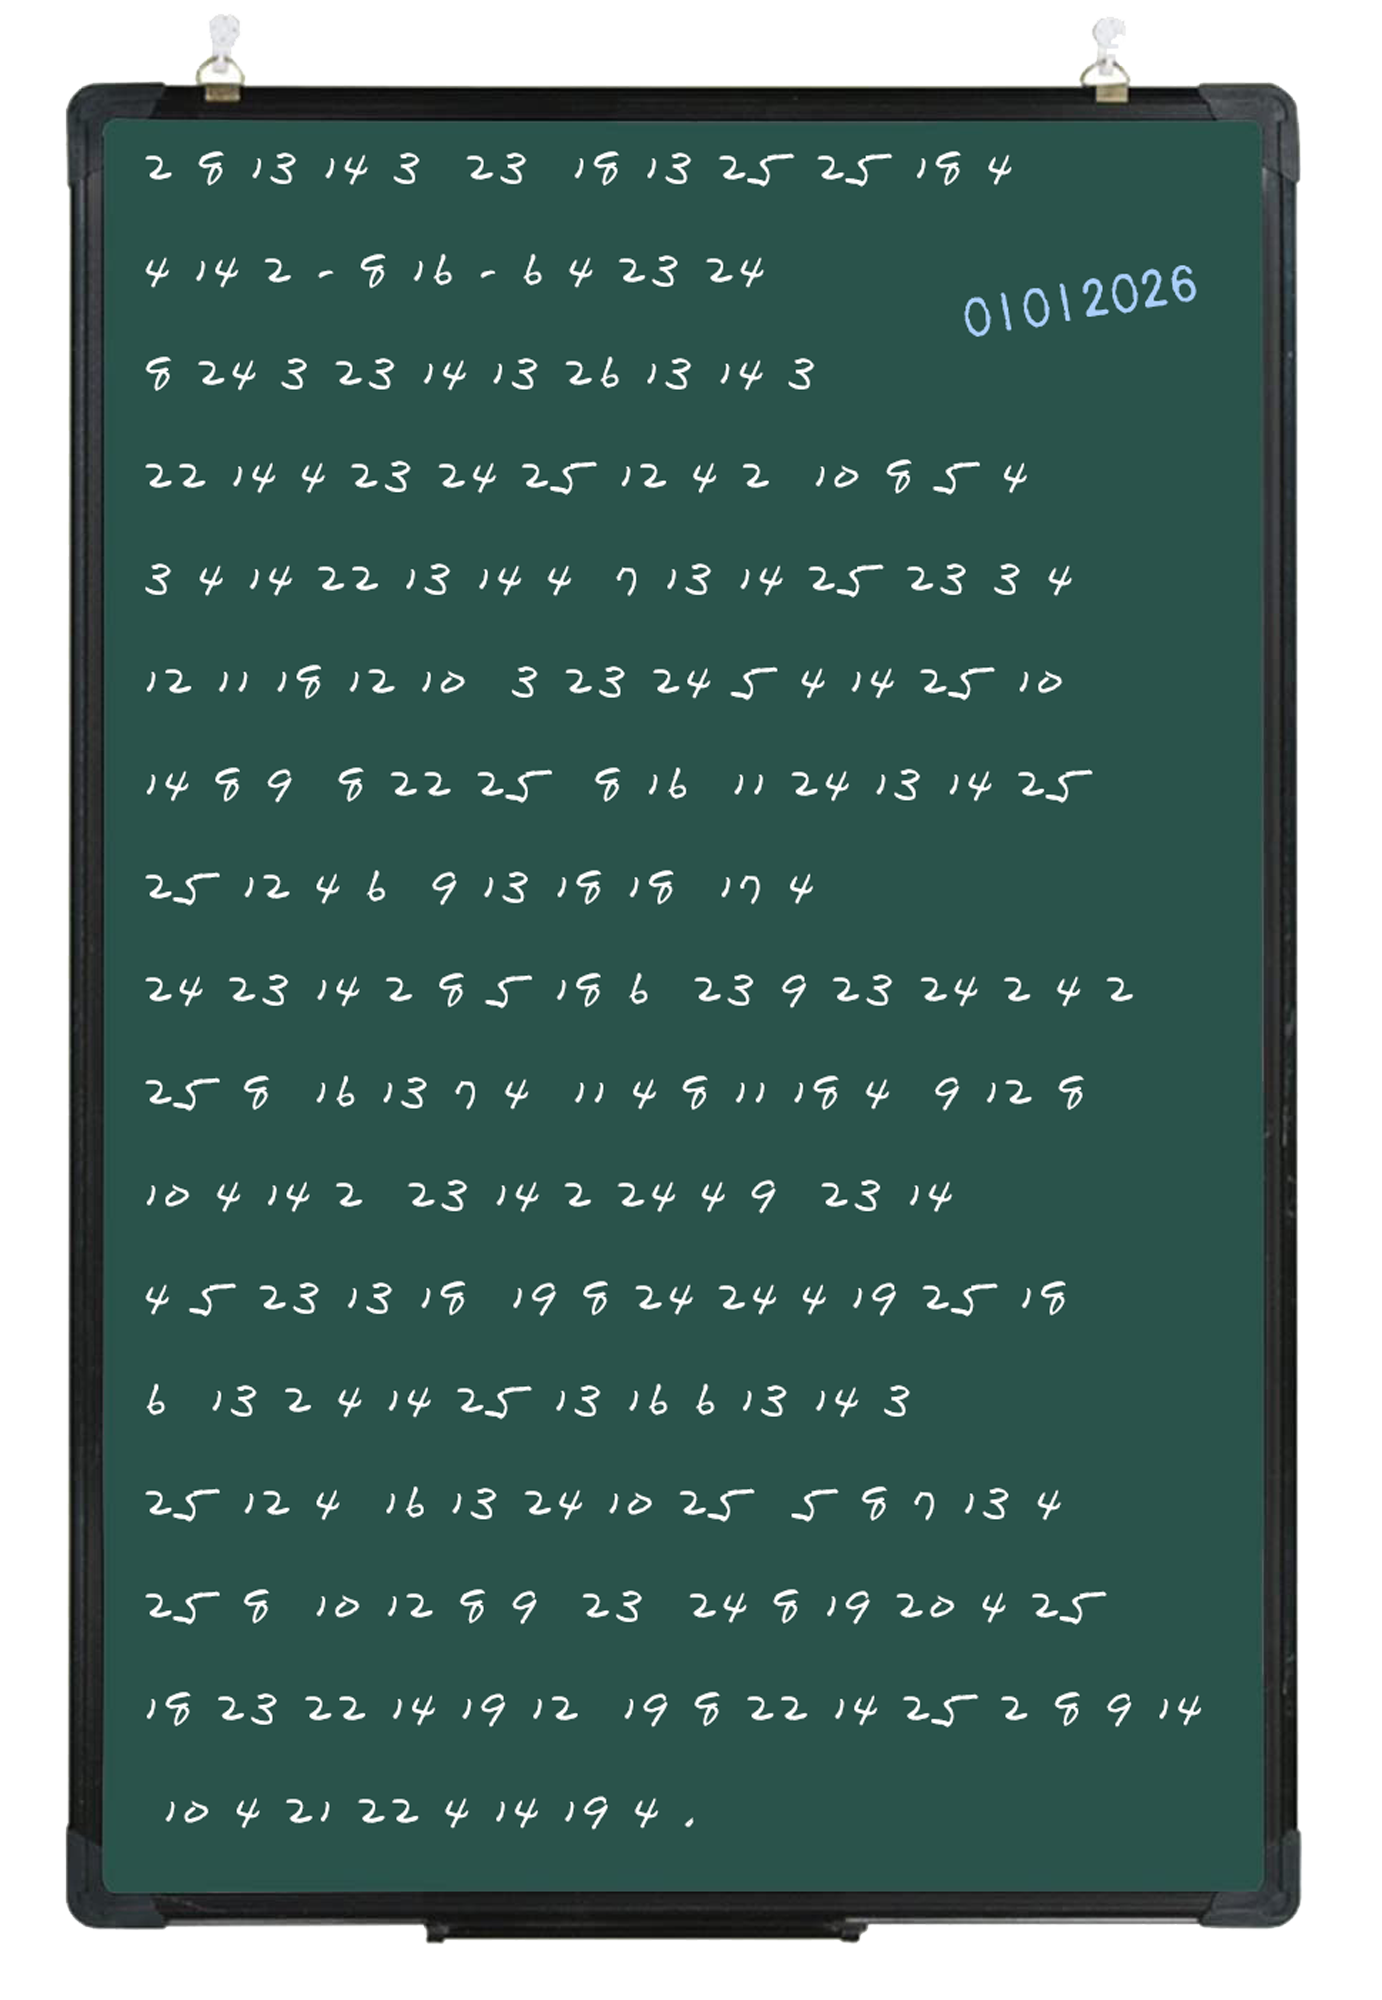 2 8 13 14 3 23 18 13 25 25 18 4
4 14 2 - 8 16 - 6 4 23 24
01012026
8 24 3 23 14 13 26 13 14 3
22 14 4 23 24 25 12 4 2 10 8 5 4
3 4 14 22 13 14 4 7 13 14 25 23 3 4
12 11 18 12 10 3 23 24 5 4 14 25 10
14 8 9 8 22 25 8 16 11 24 13 14 25
25 12 4 6 9 13 18 18 17 4
24 23 14 2 8 5 18 6 23 9 23 24 2 4 2
25 8 16 13 7 4 11 4 8 11 18 4 9 12 8
10 4 14 2 23 14 2 24 4 9 23 14
4 5 23 13 18 19 8 24 24 4 19 25 18
6 13 2 4 14 25 13 16 6 13 14 3
25 12 4 16 13 24 10 25 5 8 7 13 4
25 8 10 12 8 9 23 24 8 19 20 4 25
18 23 22 14 19 12 19 8 22 14 25 2 8 9 14
10 4 21 22 4 14 19 4 .